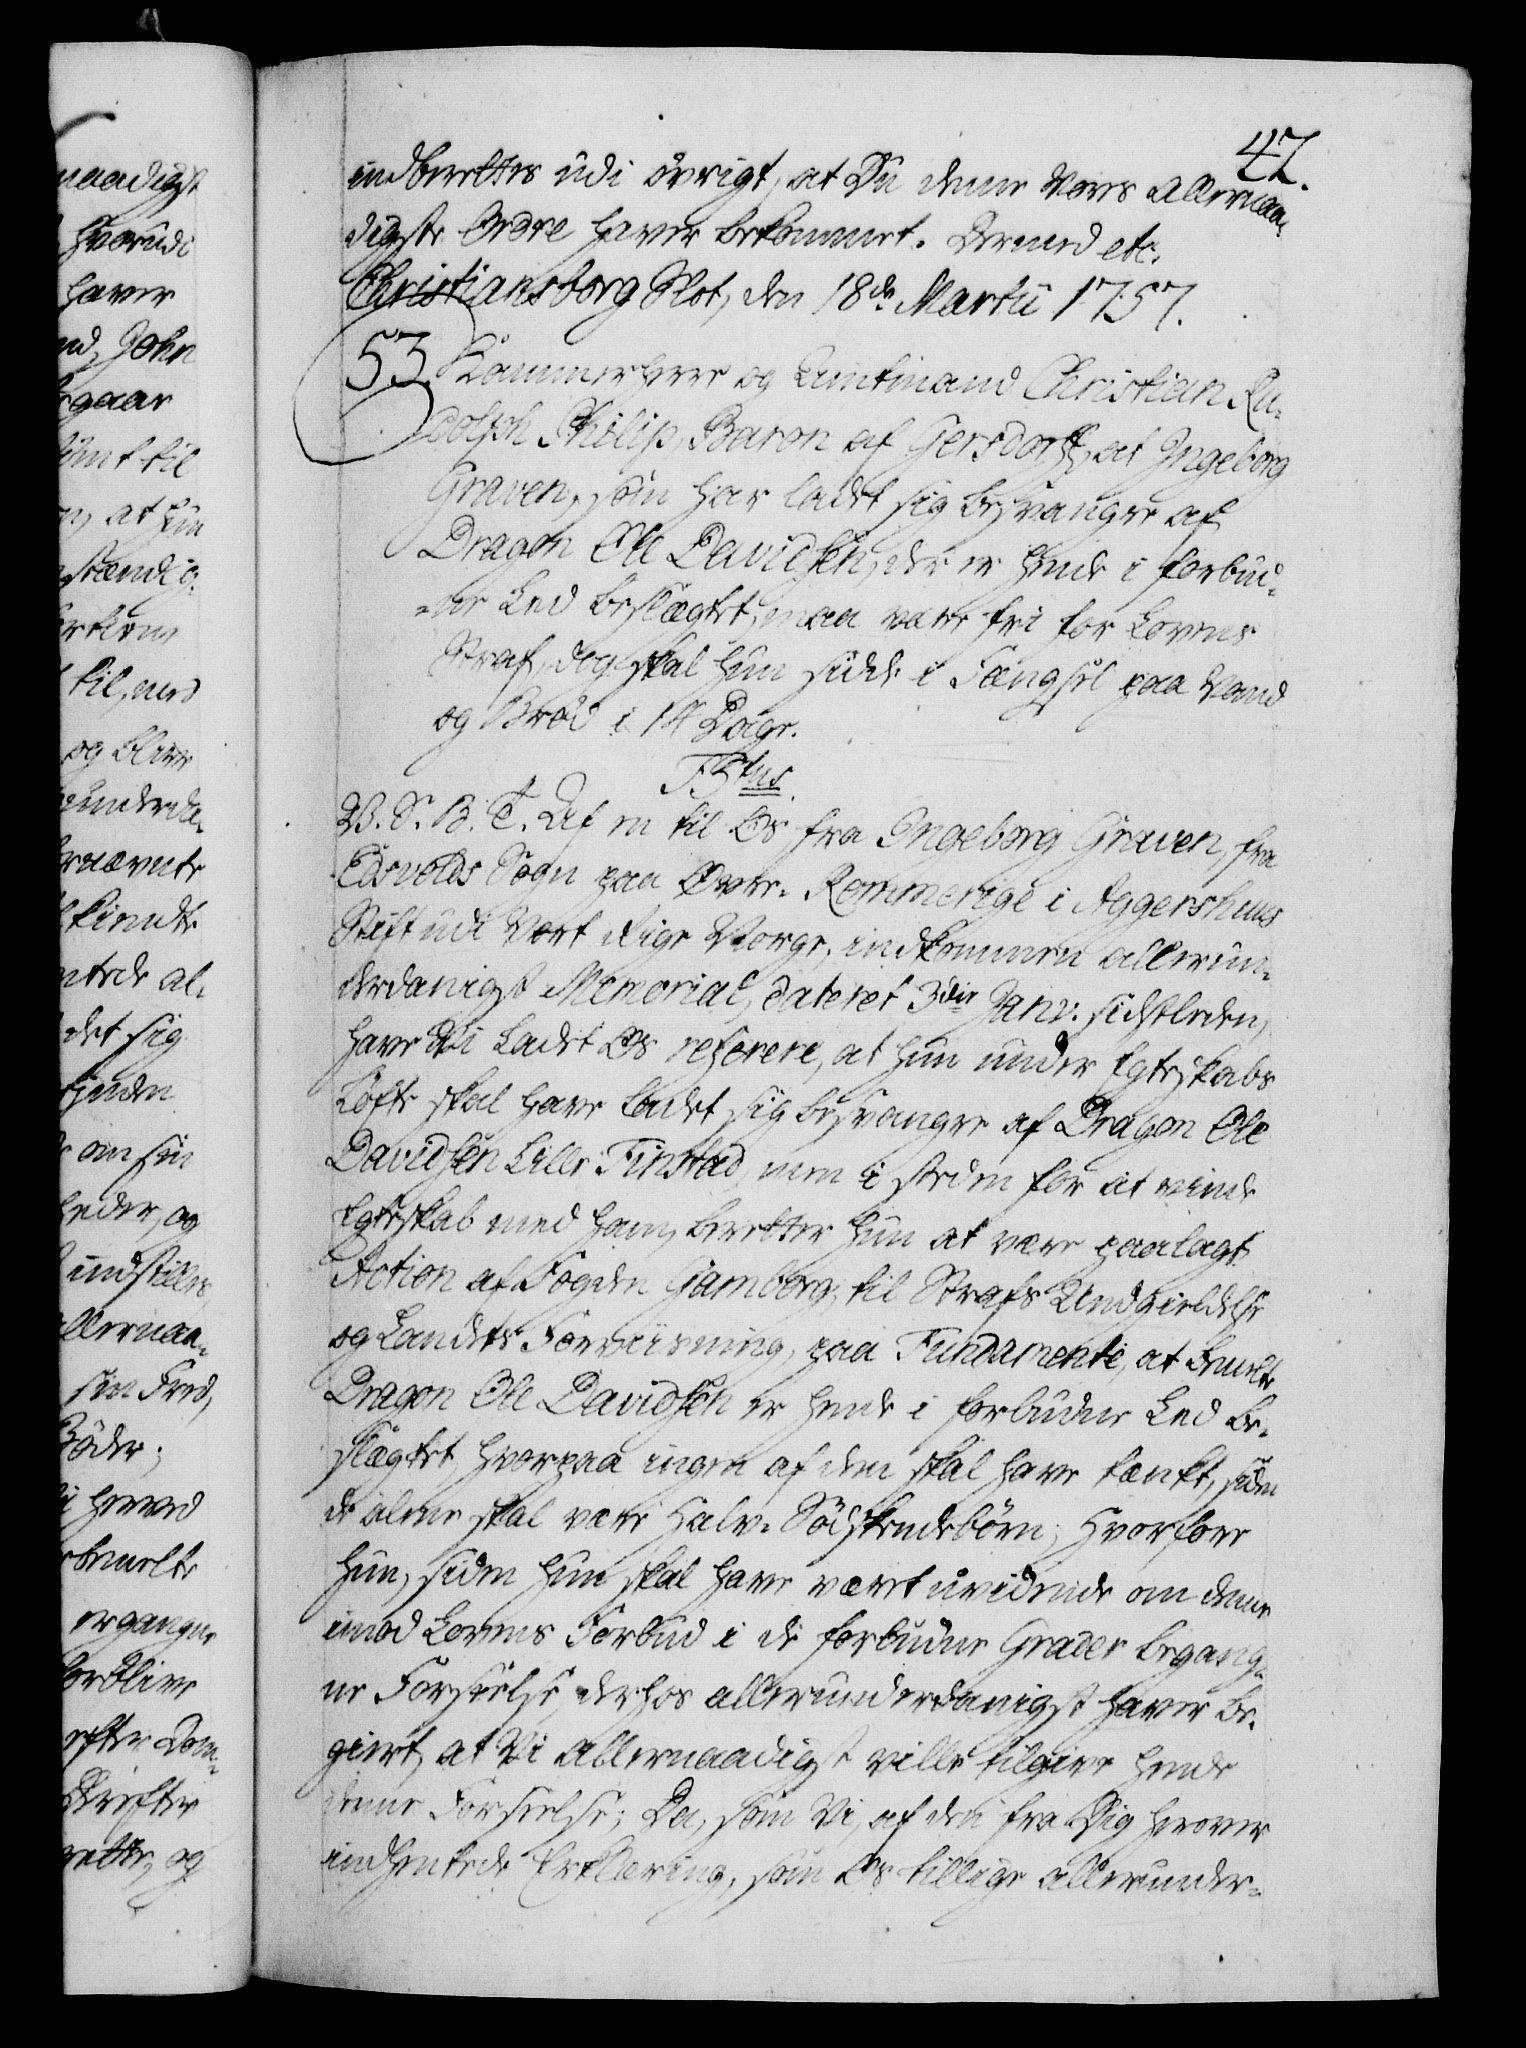 42.
indberettes udi øvrigt, at Du denne Vores allernaa-
digste Ordre haver bekommet. Dermed etc.
Christiansborg Slot, den 18de Martii 1757.
53. Kammerherre og Amtmand Christian Ru-
dolph Philip, Baron af Gersdorff, at Ingeborg
Graven, som har ladet sig besvangre af
Dragon Ole Davidsen, der er hende i forbud-
ne Led beslægtet, maa være fri for Lovens
Straf, dog skal hun sidde i Fængsel paa Vand
og Brød i 14 Dage.
F5tus
V. S. B. T. Af en til Os fra Ingeborg Graven, fra
Edsvolds Sogn paa Øvre-Rommerige i Aggershuus
Stift udi Vort Rige Norge, indkommen allerun-
derdanigst Memorial, dateret 3die Janv: sidstleden,
have Vi ladet Os referere, at hun under Egteskabs
Løfte skal have ladet sig besvangre af Dragon Ole
Davidsen Lille Finstad, men i steden for at vinde
Egteskab med ham, beretter hun at være paalagt
Action af Fogden Gamborg, til Strafs Undgieldelse
og Landets Forviisning, paa Fundamente, at bemelte
Dragon Ole Davidsen er hende i forbudne Led be-
slægtet, hvorpaa ingen af dem skal have tænkt, siden
de alene skal være Halv-Sødskendebørn; Hvorfore
hun, siden hun skal have været uvidende om denne
imod Lovens Forbud i de forbudne Grader begang-
ne Forseelse, derhos allerunderdanigst haver be-
giert, at Vi allernaadigst ville tilgive hende
denne Forseelse; Da, som Vi, af den fra Dig herover
indhentede Erklæring, som Os tillige allerunder-